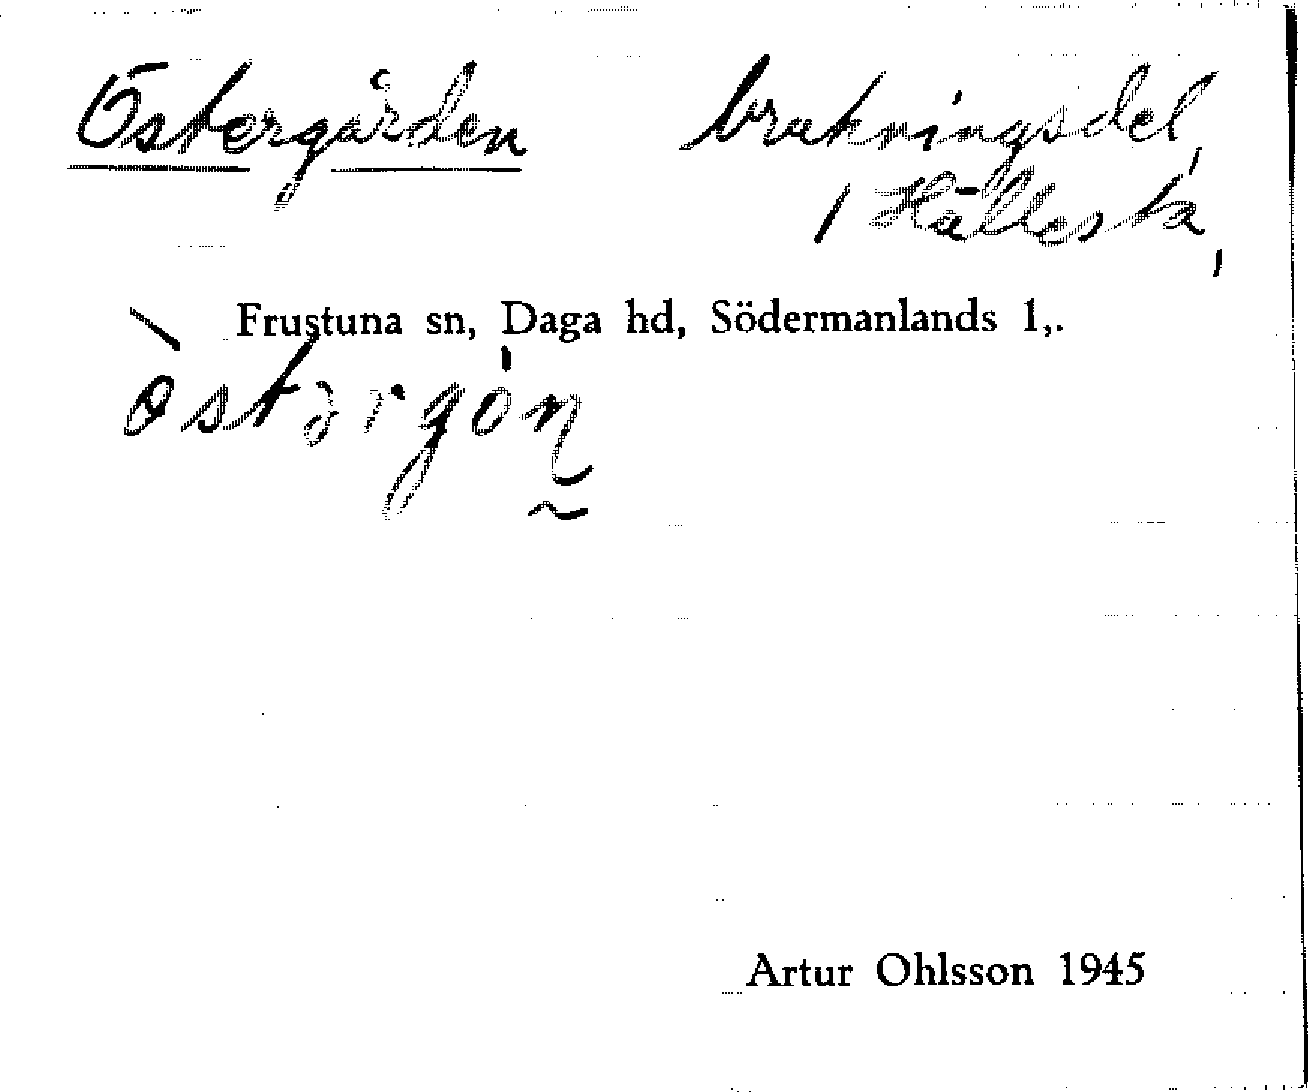 Östergården brukningsdel
i Hällesta,
Frustuna sn, Daga hd, Södermanlands l,.
òstərgón
Artur Ohlsson 1945